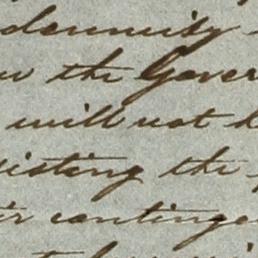 demnity
the Gover
will not
isting the
ir continge